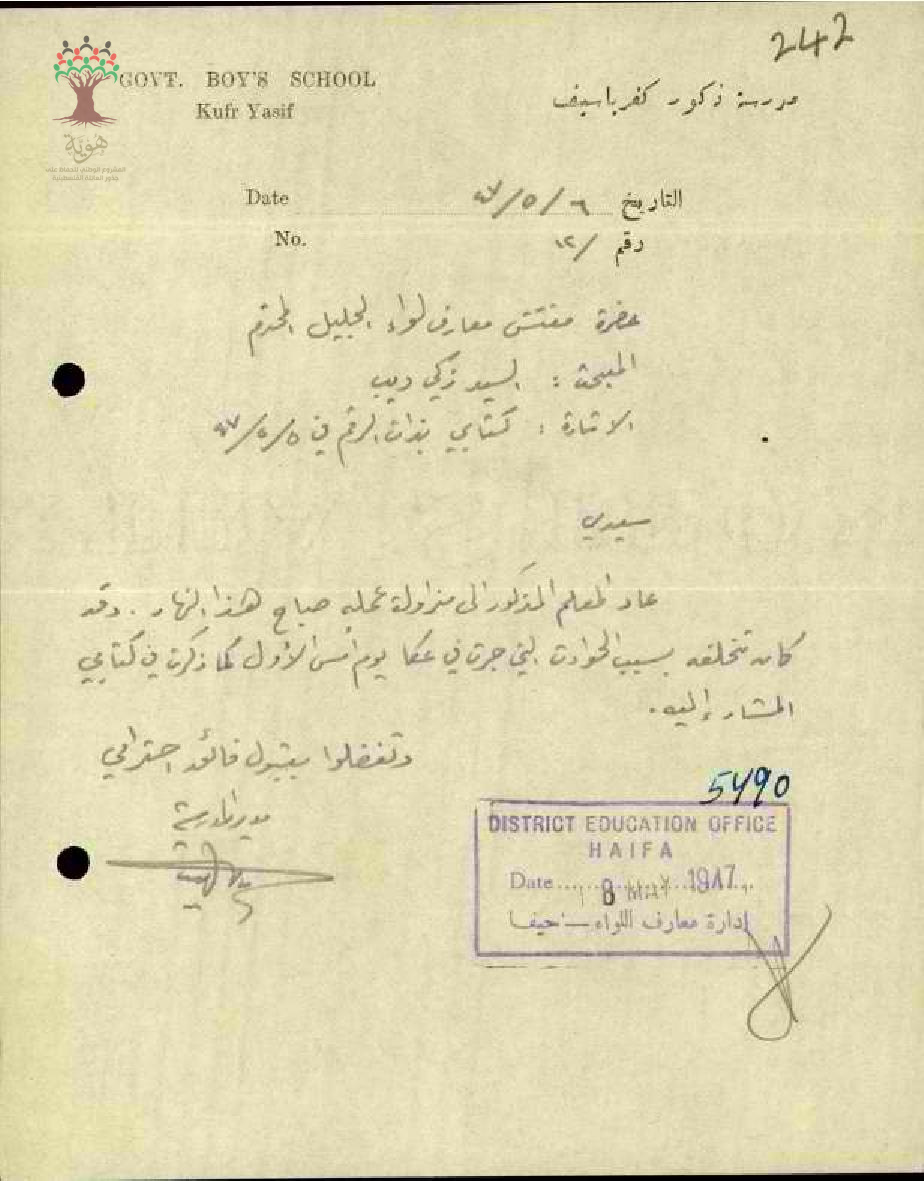 242
GOVT. BOY'S SCHOOL
Kufr Yasif
مدرسة ذكور كفرياسيف
هوية
المشروع الوطني للحفاظ على
جذور العائلة الفلسطينية
Date ٤٧/٥/٦ التاريخ
No. ١٢/ رقم
حضرة مفتش معارف لواء الجليل المحترم
المبحث : السيد زكي ديب
الاشارة : كتابي بذات الرقم في ٤٧/٥/٥
سيدي
عاد المعلم المذكور الى مزاولة عمله صباح هذا النهار . وقد
كان تخلفه بسبب الحوادث التي جرت في عكا يوم أمس الأول كما ذكرت في كتابي
المشار إليه .
وتفضلوا بقبول فائق احترامي
مدير المدرسة
5490
DISTRICT EDUCATION OFFICE
HAIFA
Date 8 MAY 1947
إدارة معارف اللواء — حيفا